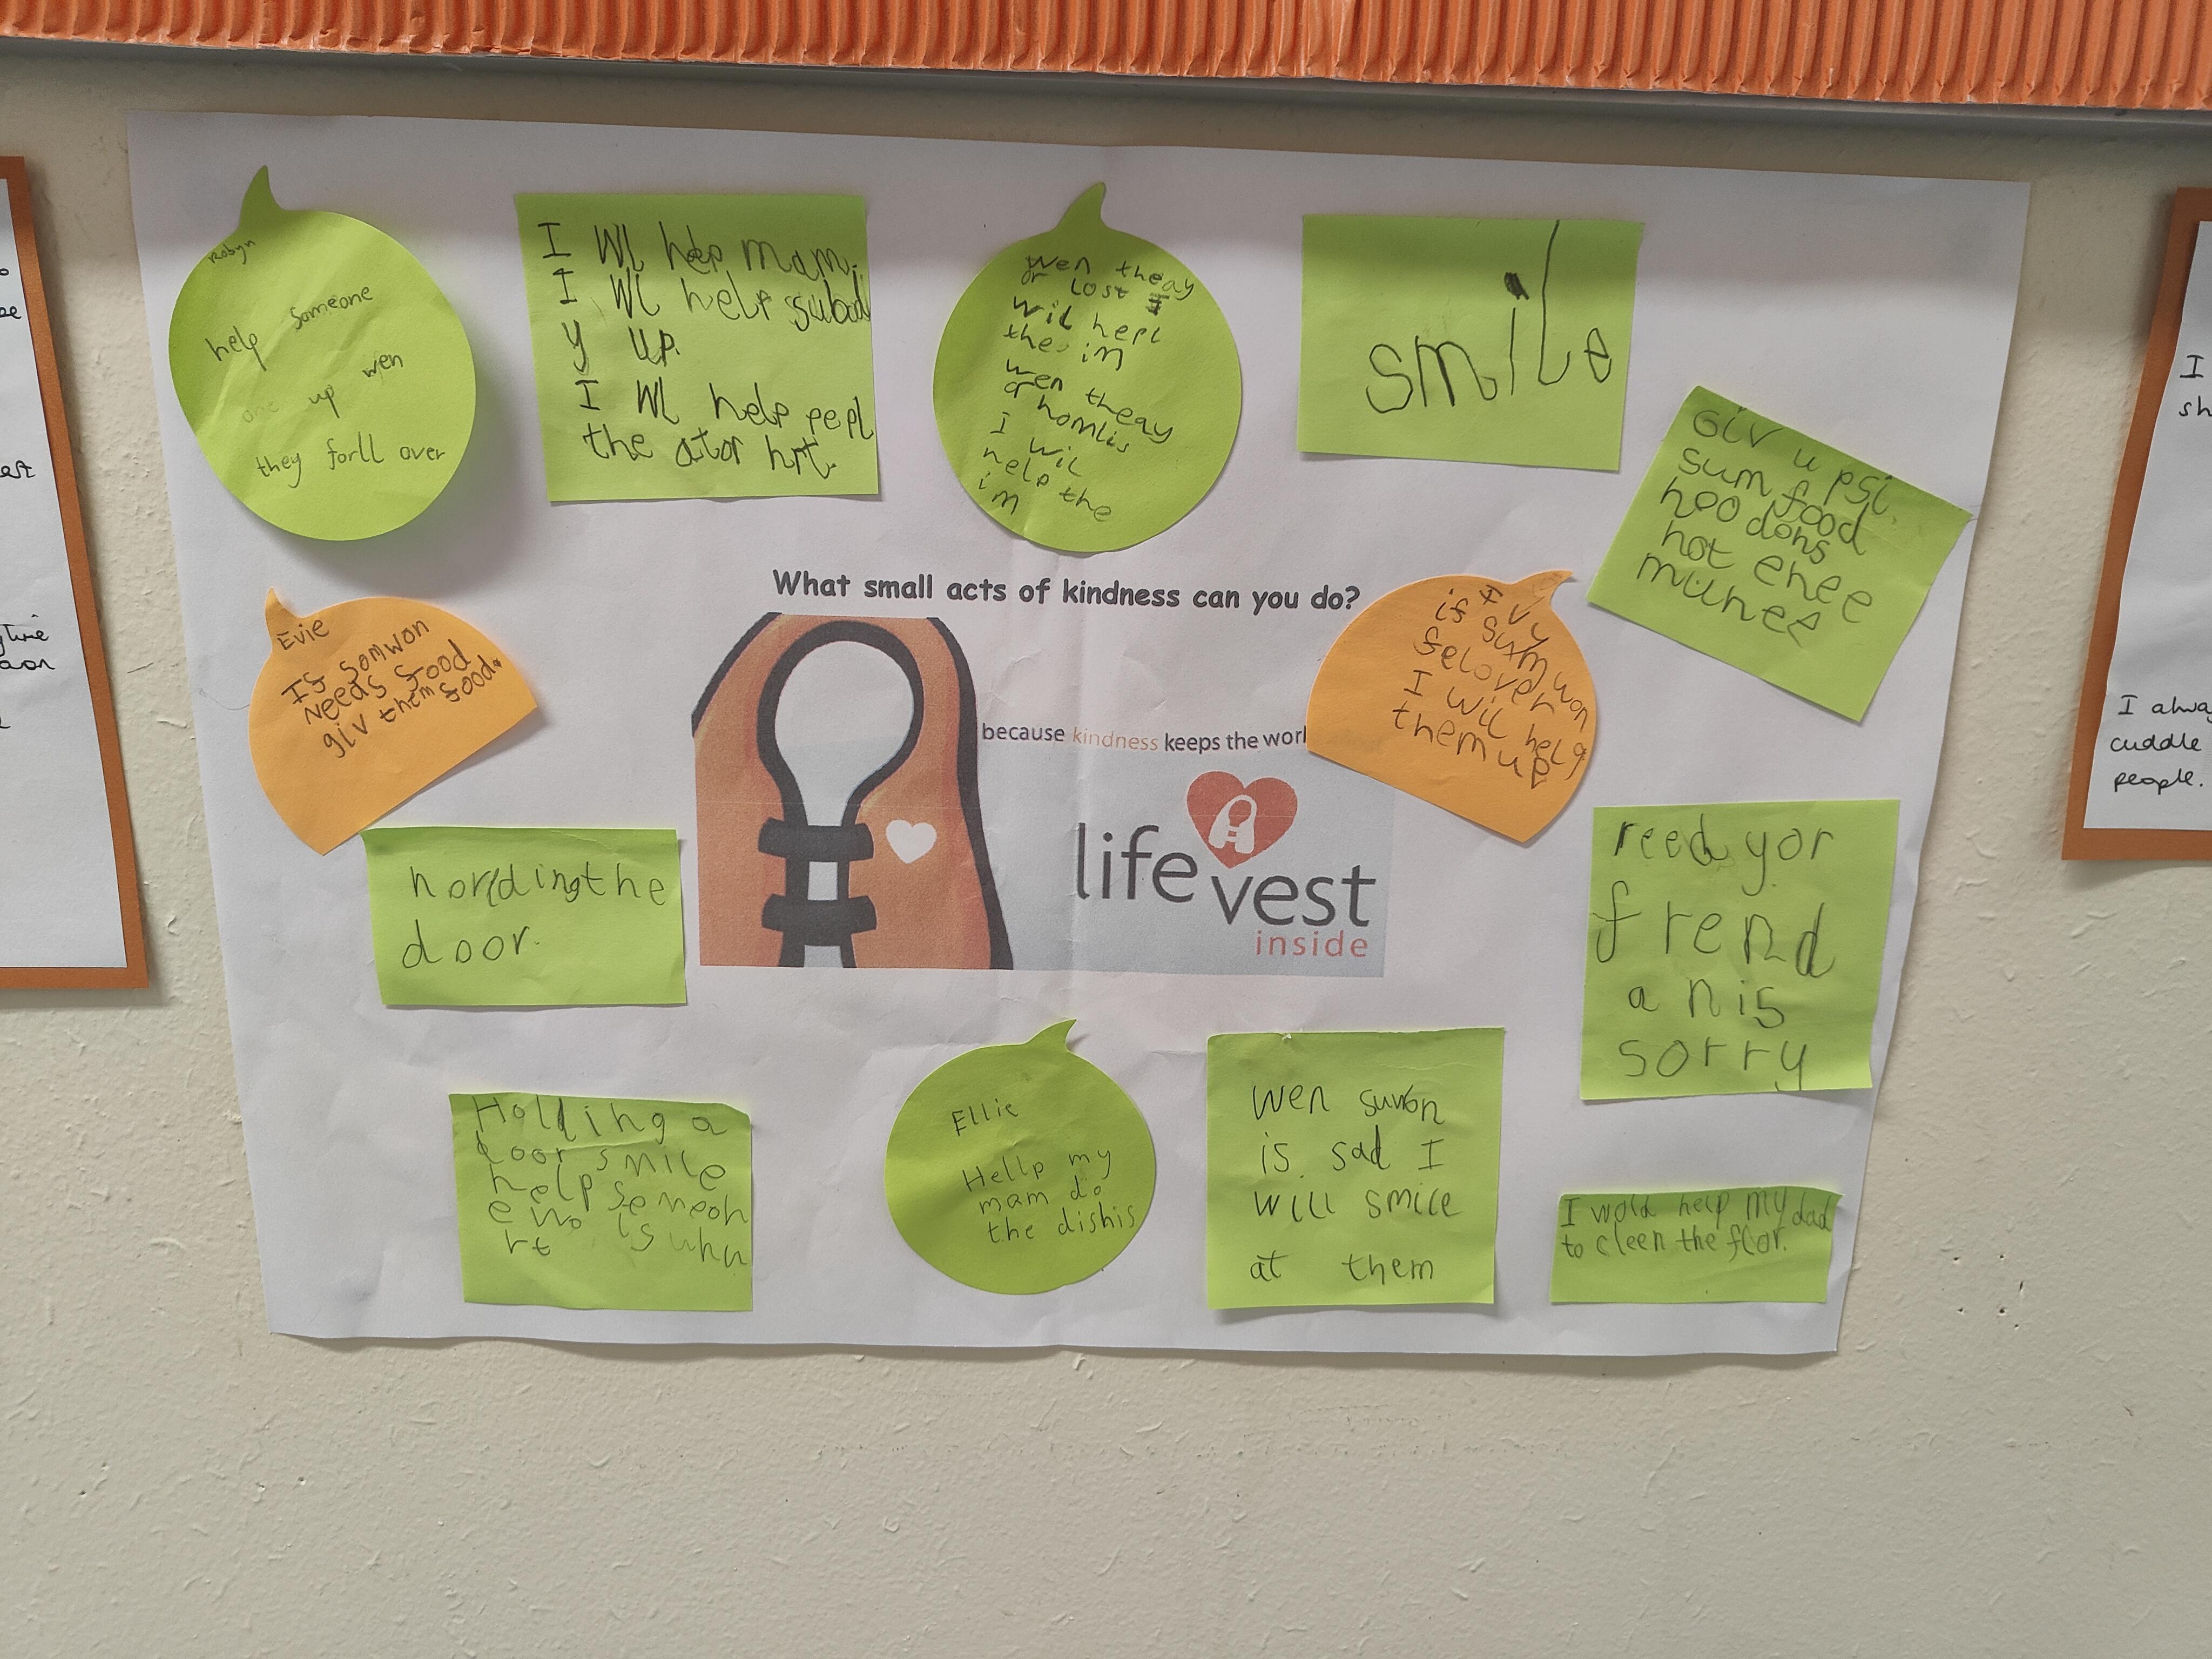 Robyn
help someone
one up wen
they forll over
I Wl help mam.
I Wl help subod
y up.
I Wl help pepl
the ator hrt.
wen theay
or Lost I
wil hepl
the im
wen theay
a homlis
I wil
help the
im
smile
Giv u psi
sum food
hoo dons
not enee
munee
What small acts of kindness can you do?
Evie
If somwon
needs food
giv them food.
Ivy
if sumwon
felover
I wil help
them up
because kindness keeps the worl
life
vest
inside
horlding the
door.
reed yor
frend
an is
sorry
Holding a
door smile
help someon
e who is uhu
rt
Ellie
Hellp my
mam do
the dishis
wen suwon
is sad I
will smile
at them
I wold help my dad
to cleen the flor.
I
sh
I alwa
cuddle
people.